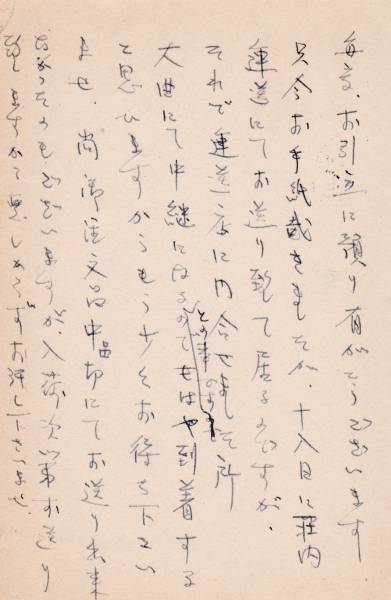 毎度、お引立に預り有がとうございます
只今お手紙戴きましたが、十八日に荘内
運送にてお送り致して居るのですが、
それで運送店に問合せました所
大曲にて中継になるのでとの事のでもはや到着する
と思ひますからもう少しお待ち下さい
ませ、尚御注文品中品切にてお送り出来
なかったのもございますが、入荷次第お送り
致しますから悪しからずお許し下さいませ